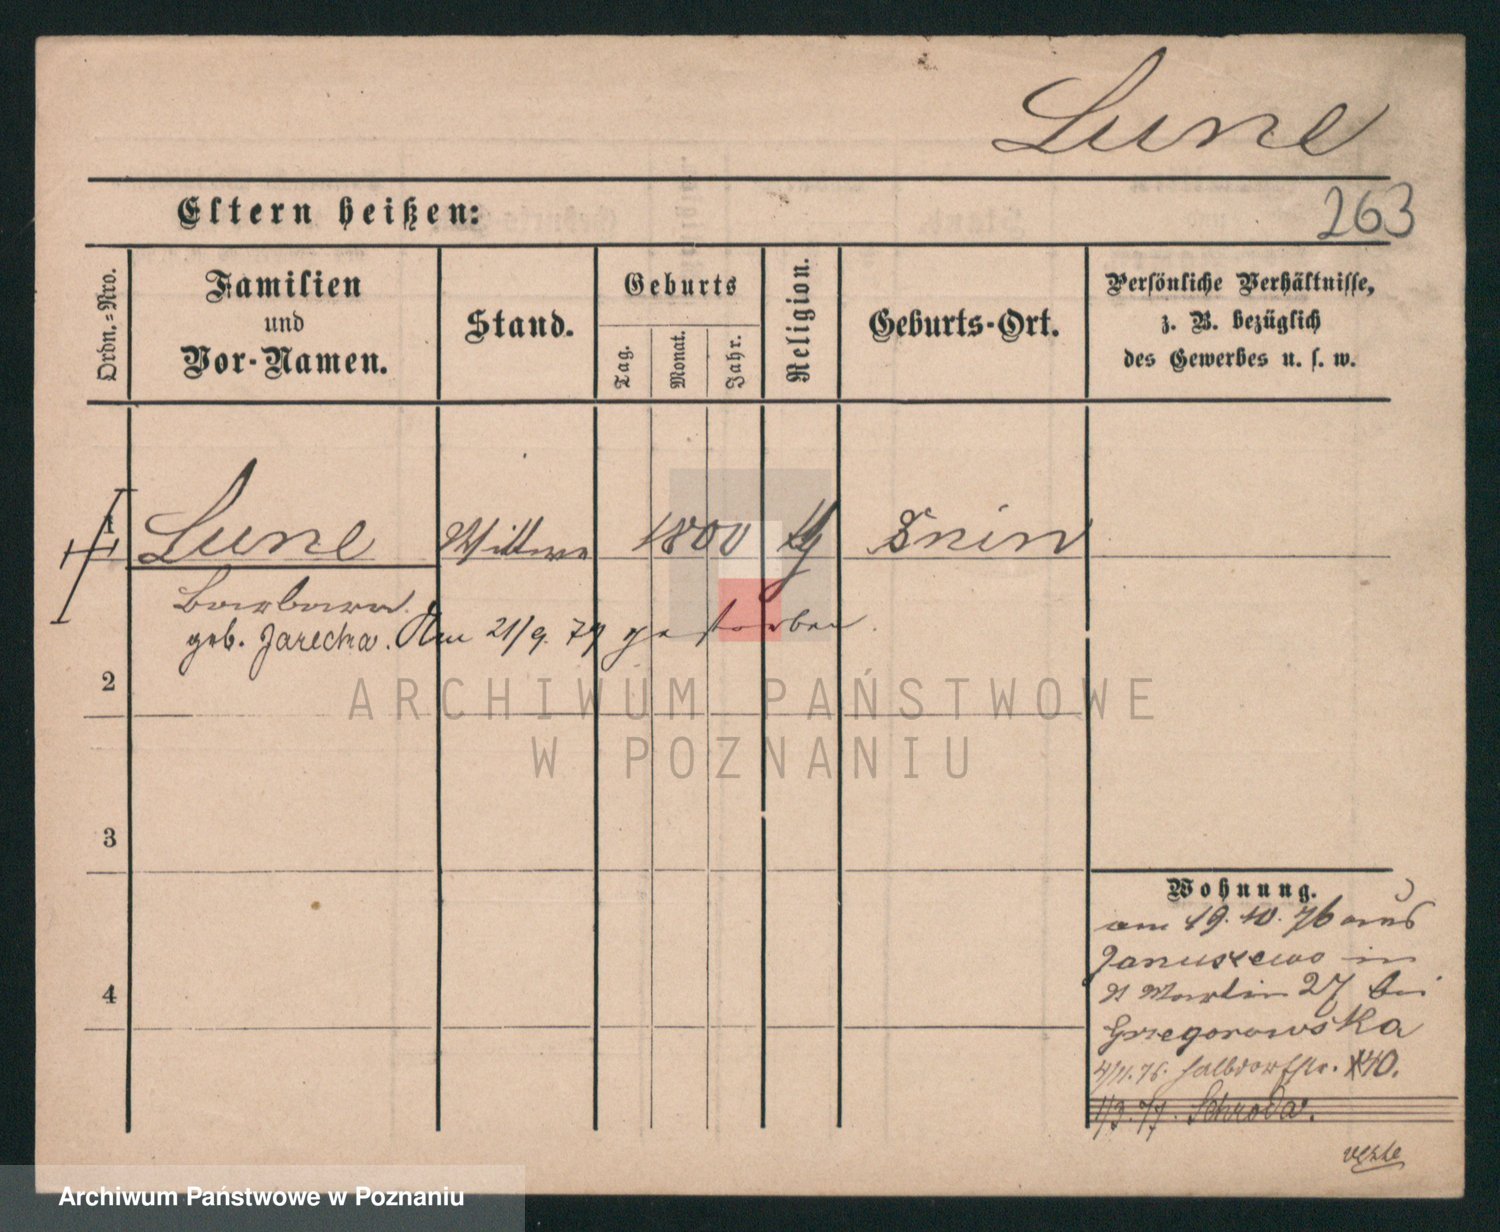 Lune
263
Eltern heißen:
Ordn.=Nro.
Familien
und
Vor-Namen.
Stand.
Geburts
Tag.
Monat.
Jahr.
Religion.
Geburts-Ort.
Persönliche Verhältnisse,
z. B. bezüglich
des Gewerbes u. s. w.
1
Lune
Wittwe
1800
Znin
Barbara
geb. Jarecka. Am 21/9. 79 gestorben.
2
ARCHIWUM PAŃSTWOWE
W POZNANIU
3
4
Wohnung.
am 19. 10. 76 aus
Januszewo in
St Martin 27 bei
Grzegorowska
4/11. 76. Halbdorfstr. 10.
1/3. 77. Schroda.
Archiwum Państwowe w Poznaniu